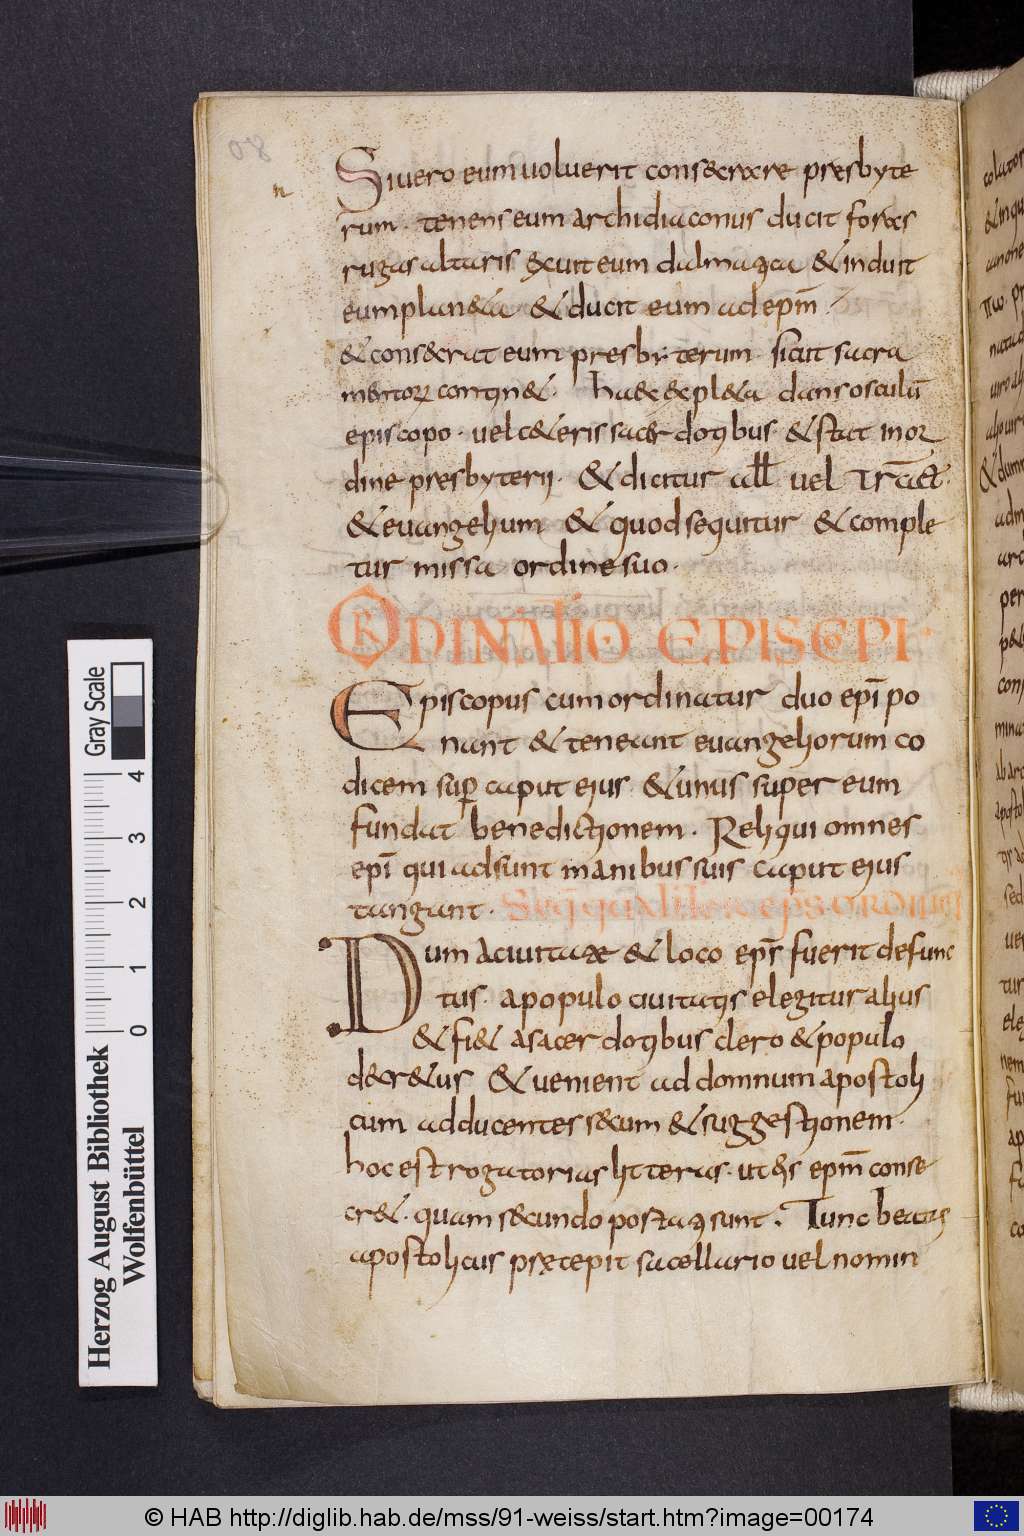 Si vero eum voluerit cons&crare presbyte
rum · tenens eum archidiaconus ducit foras
rugas altaris &xuit eum dalmatica & induit
eum plan&a & ducit eum ad ep̄m
& cons&crat eum presbiterum · sicut sacra
mentorꝝ contin& · haec expl&a dans osculū
episcopo · vel c&eris sacerdotibus · & stat in or
dine presbyterii · & dicitur all̄ vel tract̄ ·
& evangelium & quod sequitur & comple
tur missa ordine suo ·
ORDINATIO EPISCOPI ·
Episcopus cum ordinatur duo ep̄i po
nant & teneant evangeliorum co
dicem sup̄ caput eius · & unus super eum
fundat benedictionem · Reliqui omnes
ep̄i qui adsunt manibus suis caput eius
tangant · Seq̄ qualiter ep̄s ordinet̄
Dum a civitate & loco ep̄s fuerit defunc
tus · a populo civitatis elegitur alius
& fi& a sacerdotibus clero & populo
d&cr&us & venient ad domnum apostoli
cum adducentes s&cum & suggestionem ·
hoc est rogatorias litteras · ut eis ep̄m conse
cr& · quam secundo postati sunt · Tunc beatus
apostolicus praecepit sacellario vel nomin
Gray Scale
4
3
2
1
0
Herzog August Bibliothek
Wolfenbüttel
© HAB http://diglib.hab.de/mss/91-weiss/start.htm?image=00174